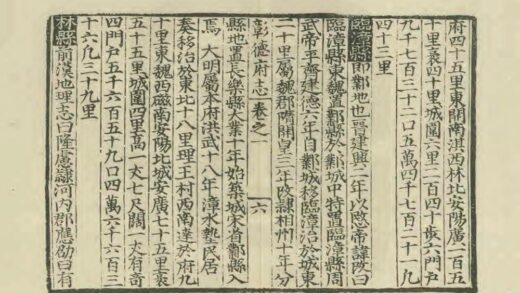 府四十五里東開南淇西林北安陽廣一百五
十里袤四十里城圍六里二百四十步六門戶
九千七百三十二口五萬四千七百二十一凡
四十三里
臨漳縣即鄴地也晉建興二年以愍帝諱改曰
臨漳縣東魏置鄴縣於鄴城中特置臨漳縣周
武帝平齊建德六年自鄴城移臨漳治於城東
二十里屬魏郡隋開皇三年改隸相州十年分
彰德府志 卷之一 六
縣地置長樂縣大業十年始築城宋省鄴縣入
焉 大明屬本府洪武十八年漳水墊民居
奏移治於東北十八里理王村西南達於府九
十里東魏西磁南安陽北城安廣七十五里袤
五十五里城圍四里高一丈七尺闊一丈有奇
四門戶五千六百五十九口四萬六千六百三
十六凡三十九里
林縣前漢地理志曰隆慮隸河内郡應劭曰有